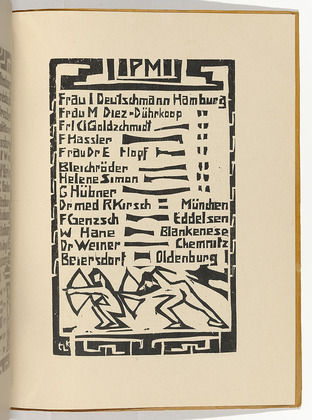 PM
Frau I Deutschmann Hamburg
Frau M Diez-Dührkoop "
Frl Cl Goldzchmidt "
F Hassler "
Frau Dr E Hopf "
Bleichröder "
Helene Simon "
G Hübner "
Dr med R Kirsch München
F Genzsch Eddelsen
W Hane Blankenese
Dr Weiner Chemnitz
Beiersdorf Oldenburg